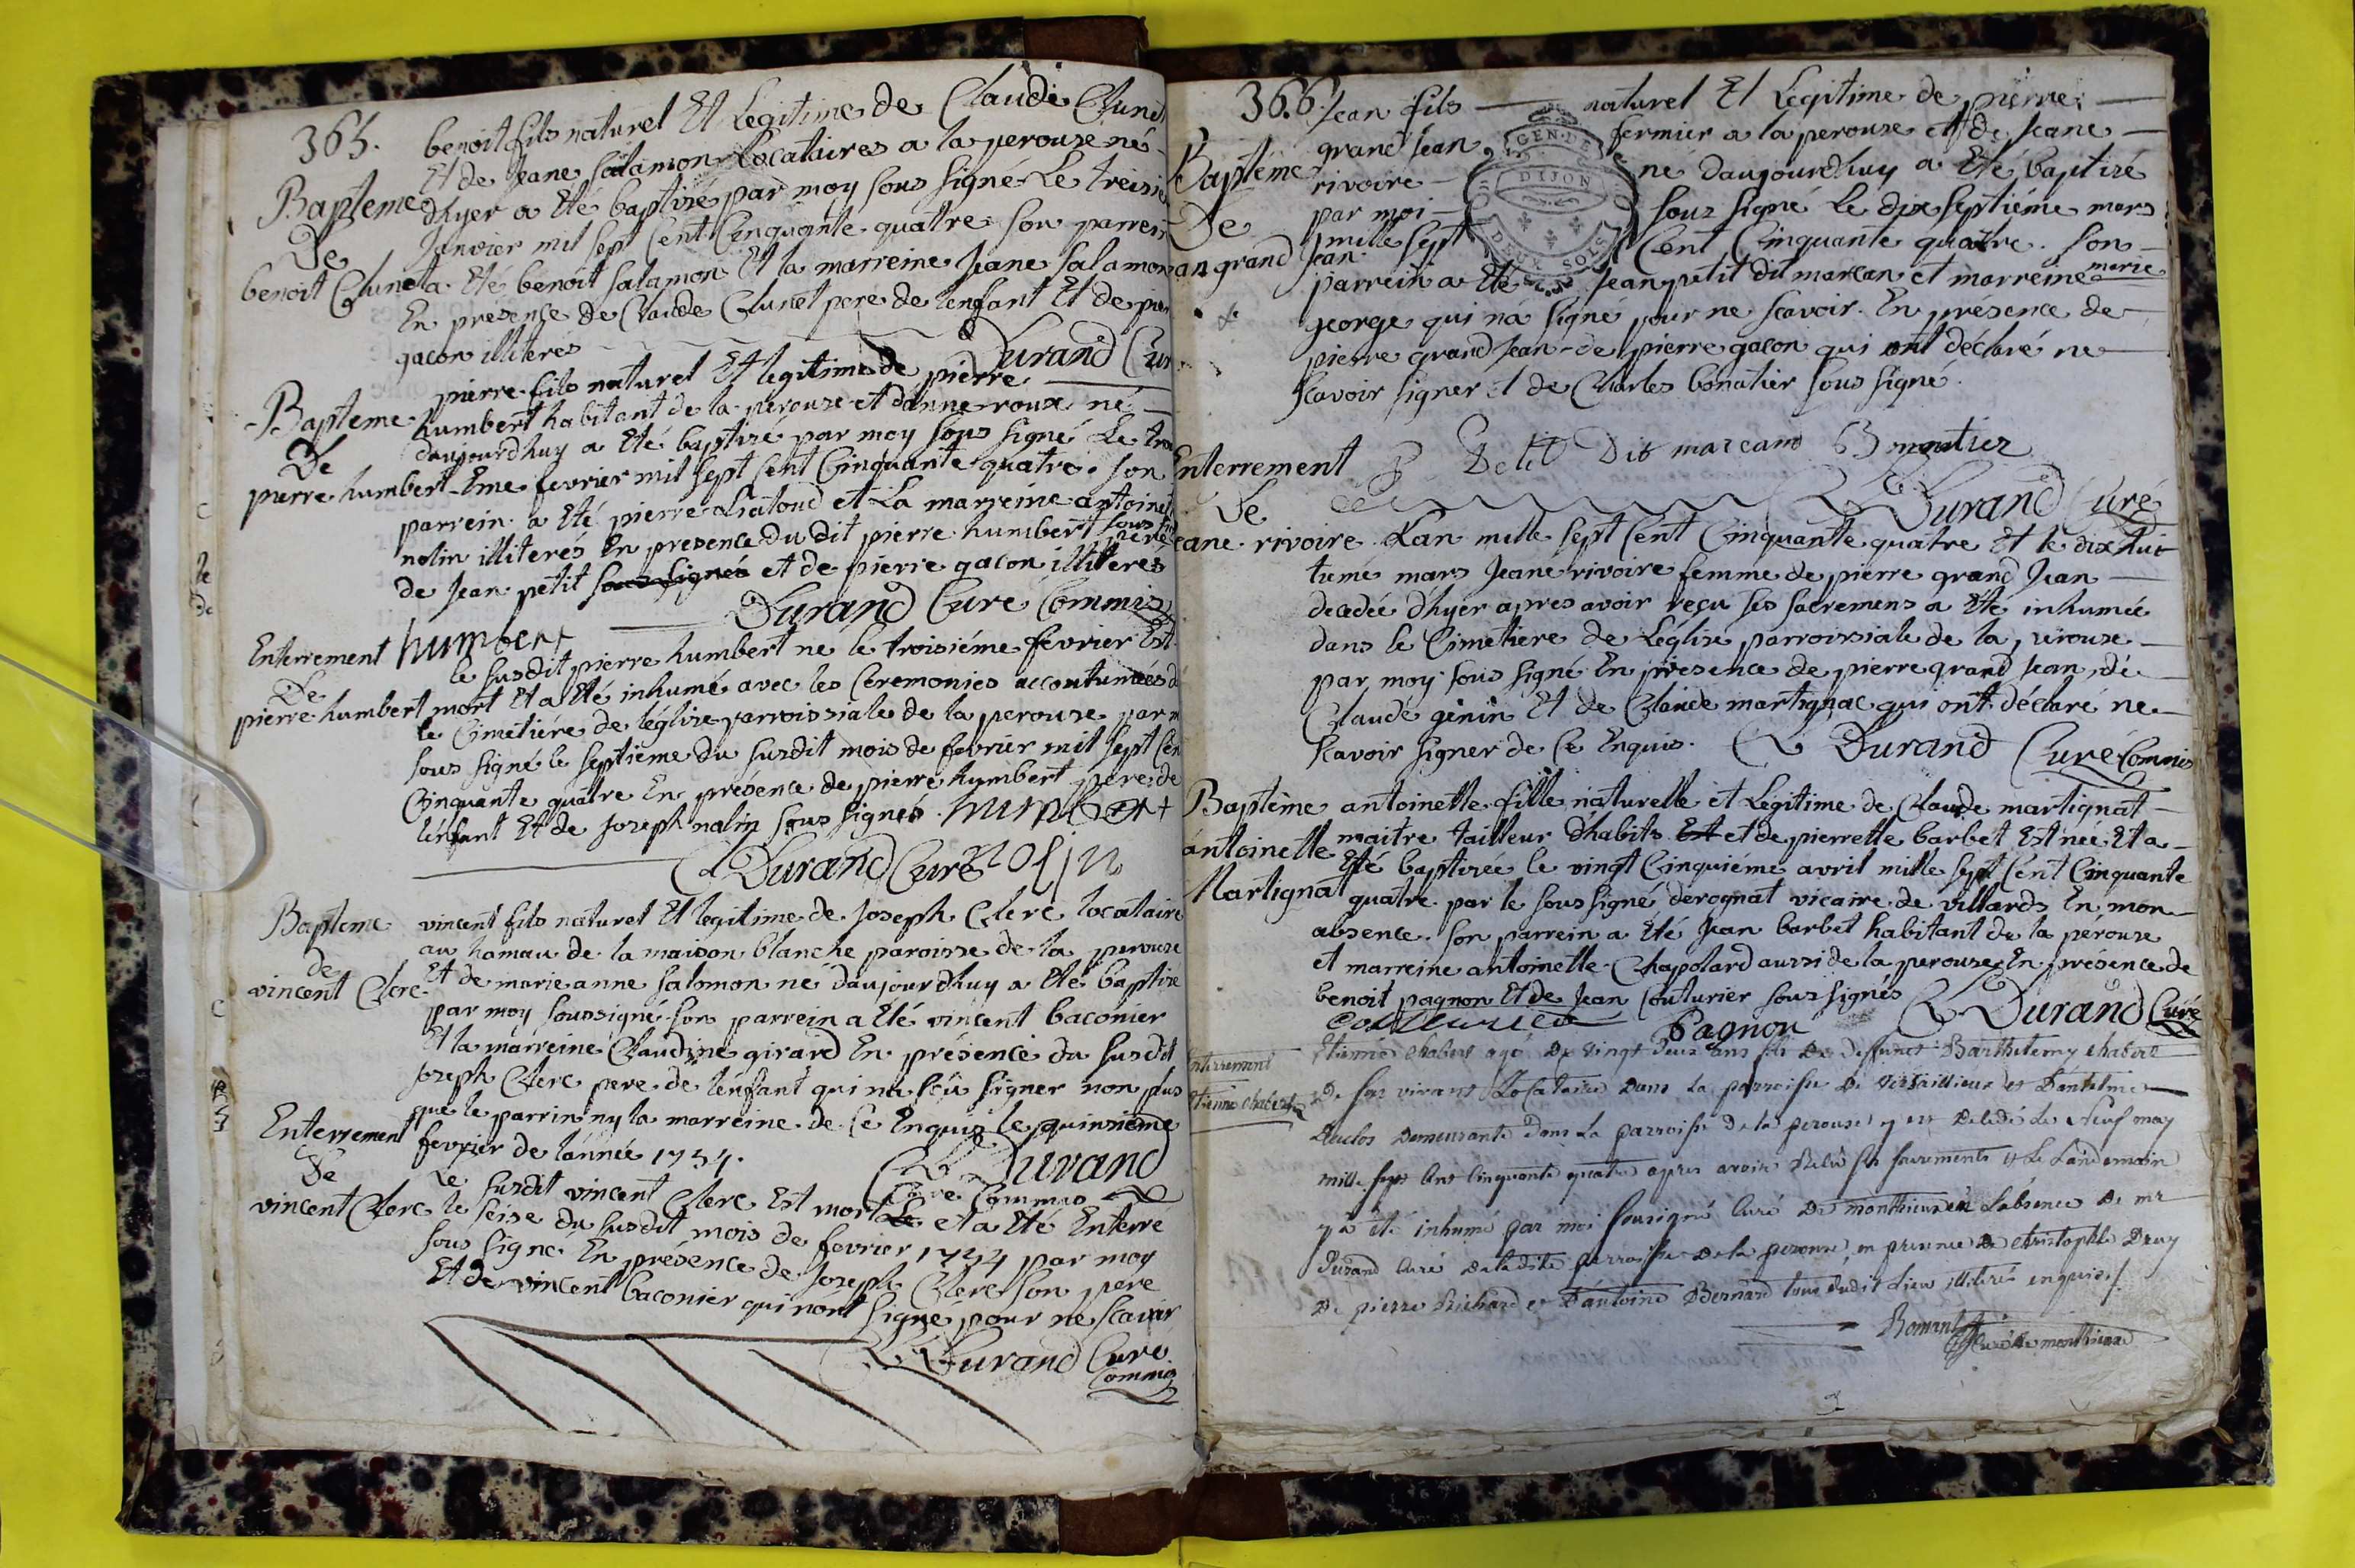 365.
benoit fils naturel Et Legitime de Claude Clunet
Et de Jeane Salamon Locataires a la perouze né
Bapteme
De
benoit Clunet
d'hyer a Eté baptizé par moy sous signé Le treisie
Janvier mil sept Cent Cinquante quatre son parrein
a Eté benoit salamon Et la marreine Jeane salamon
En présence de Claude Clunet pere de l'enfant Et de pier
gacon illiterés
Durand Cur
Bapteme
De
pierre humbert
pierre fils naturel Et legitime de pierre
humbert habitant de la perouze et d'anne roux né
daujourdhuy a Eté baptizé par moy sous signé Le troi
Eme fevrier mil sept Cent Cinquante quatre. son
parrein a Eté pierre Liatoud et La marreine antoinet
nalin illiterés En presence du dit pierre humbert sous signé
de Jean petit sous signés et de pierre gacon illiteres
Durand Curé Commis
humbert
Enterrement
De
pierre humbert
le susdit pierre humbert ne le troisiéme fevrier Est
mort Et a Eté inhumé avec les Ceremonies accoutumées d
le Cimetiére de léglize parroissiale de la perouze par m
sous signé le septieme du susdit mois de fevrier mil sept Cen
Cinquante quatre En présence de pierre humbert pere de
l'enfant Et de Joseph nalin sous signés. humbert
Durand Curé nolin
Bapteme
de
vincent Clerc
vincent fils naturel Et legitime de Joseph Clerc locataire
au hamau de la maison blanche paroisse de la perouze
Et de marie anne salomon né daujourdhuy a Eté baptizé
par moy soussigné son parrein a Eté vincent baconier
Et la marreine Claudine girard En présence du susdit
Joseph Clerc pere de l'énfant qui na sçû signer non plus
que le parrin ny la marreine de Ce Enquis le quinsiéme
fevrier de lánnée 1754.
Durand
Curé Commis
Enterrement
De
vincent Clerc
Le susdit vincent Clerc Est mort Le et a Eté Enterre
le seise du susdit mois de fevrier 1754 par moy
sous signé En présence de Joseph Clerc son pere
Et de vincent baconier qui nónt signé pour ne scavoir
Durand Curé
Commis
366.
Jean fils naturel Et Légitime de pierre
Baptéme
De
Jean grand Jean
grand Jean fermier a la perouze et de Jeane
rivoire né daujourdhuy a Eté baptizé
par moi sous signé Le dix septiéme mars
mille sept Cent Cinquante quatre. son
GEN. DE
DIJON
DEUX SOLS
parrein a Eté Jean petit dit marcan et marreine marie
george qui ná signé pour ne scavoir. En présence de
pierre grand Jean de pierre gacon qui ont déclaré ne
scavoir signer et de Charles bonatier sous signé.
Petit Dit marcand Bonnatier
Durand Curé
Enterrement
De
Jeane rivoire
L'an mille sept Cent Cinquante quatre Et le dix huit
tiemé mars Jeane rivoire femme de pierre grand Jean
decedée d'hyer apres avoir reçu ses sacremens a Eté inhumée
dans le Cimetiere de Léglize parroissiale de la perouze
par moy sous signé En présence de pierre grand Jean, de
Claude génin Et de Claude martignac qui ont déclaré ne
scavoir signer de Ce Enquis. Durand Curé Commis
Baptême
antoinette
Martignat
antoinette fille naturelle et Légitime de Claude martignat
maitre tailleur d'habits Est et de pierrette barbet Est née Et a
Eté baptizée le vingt Cinquiéme avril mille sept Cent Cinquante
quatre par le sous signé derognat vicaire de villards En mon
absence. son parrein a Eté Jean barbet habitant de la perouze
et marreine antoinette Chapolard aussi de la perouze En présence de
benoit pagnon Et de Jean Couturier sous signés Durand Curé
Couturier Pagnon
Enterrement
Etienne chabert
Etienne chabert agé De vingt deux ans fils De deffunct Barthelemy chabert
De son vivant Locataire Dans La parroisse De versailleux et Dantelme
Duclos Demeurante Dans La parroisse De la perouse y est Decedé Le Neuf may
mille sept Cent Cinquante quatre apres avoir Recu ses sacrements et Le Landemain
y a été inhumé par moi sousigné Curé De monthieux en Labsence De mr
Durand Curé De ladite parroisse De la perouse, en presence De christophle Druy
De pierre Richard et Dantoine Bernard tous Dudit Lieu illiterés enquis./.
Curé De monthieux
3